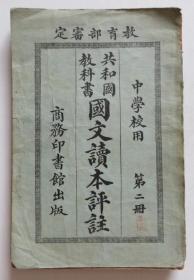 教育部審定
中學校用
第二冊
共和國
教科書
國文讀本評註
商務印書館出版